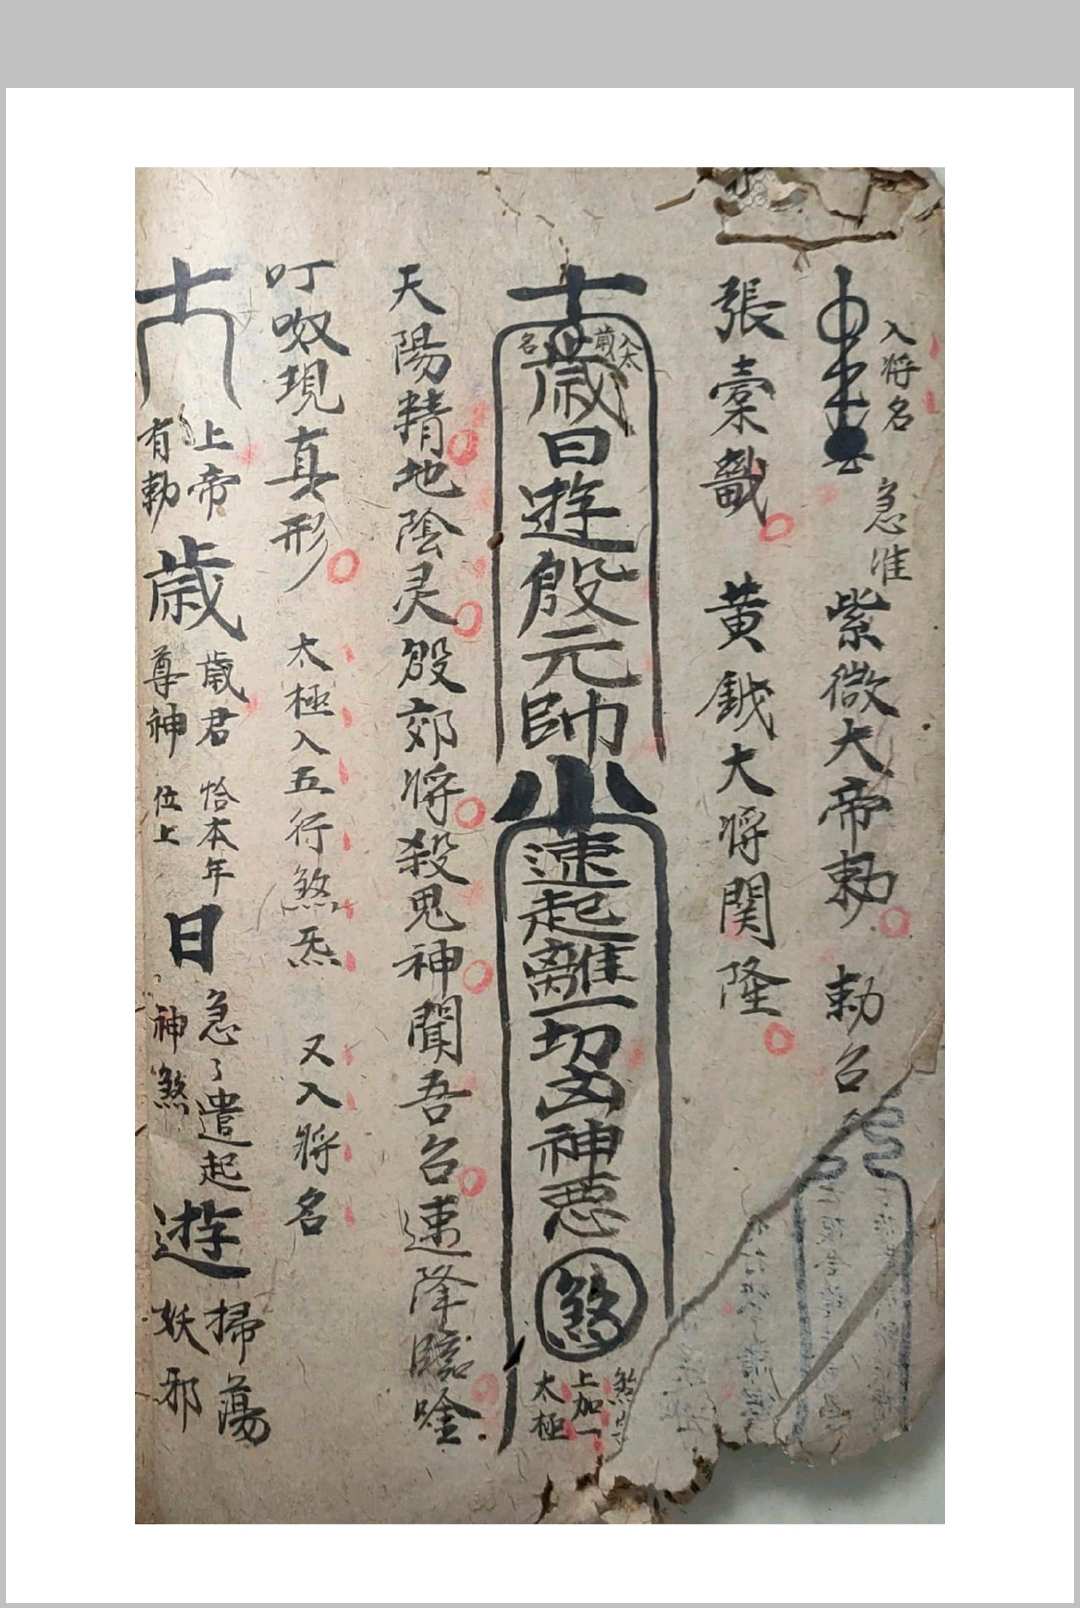 入將名
急准
紫微大帝勅 勅召
張橐韱 黄鉞大将関隆
入太
歲
名
歲日遊殷元帥
速起離一切凶神恶
煞
煞字
上加一
太極
天陽精地陰灵殷郊将殺鬼神聞吾召速降臨唫
叮呶現真形 太極入五行煞炁 又入將名
上帝
有勅
歲
歲君 恰本年
尊神 位上
日
急了遣起
神煞
遊
掃蕩
妖邪